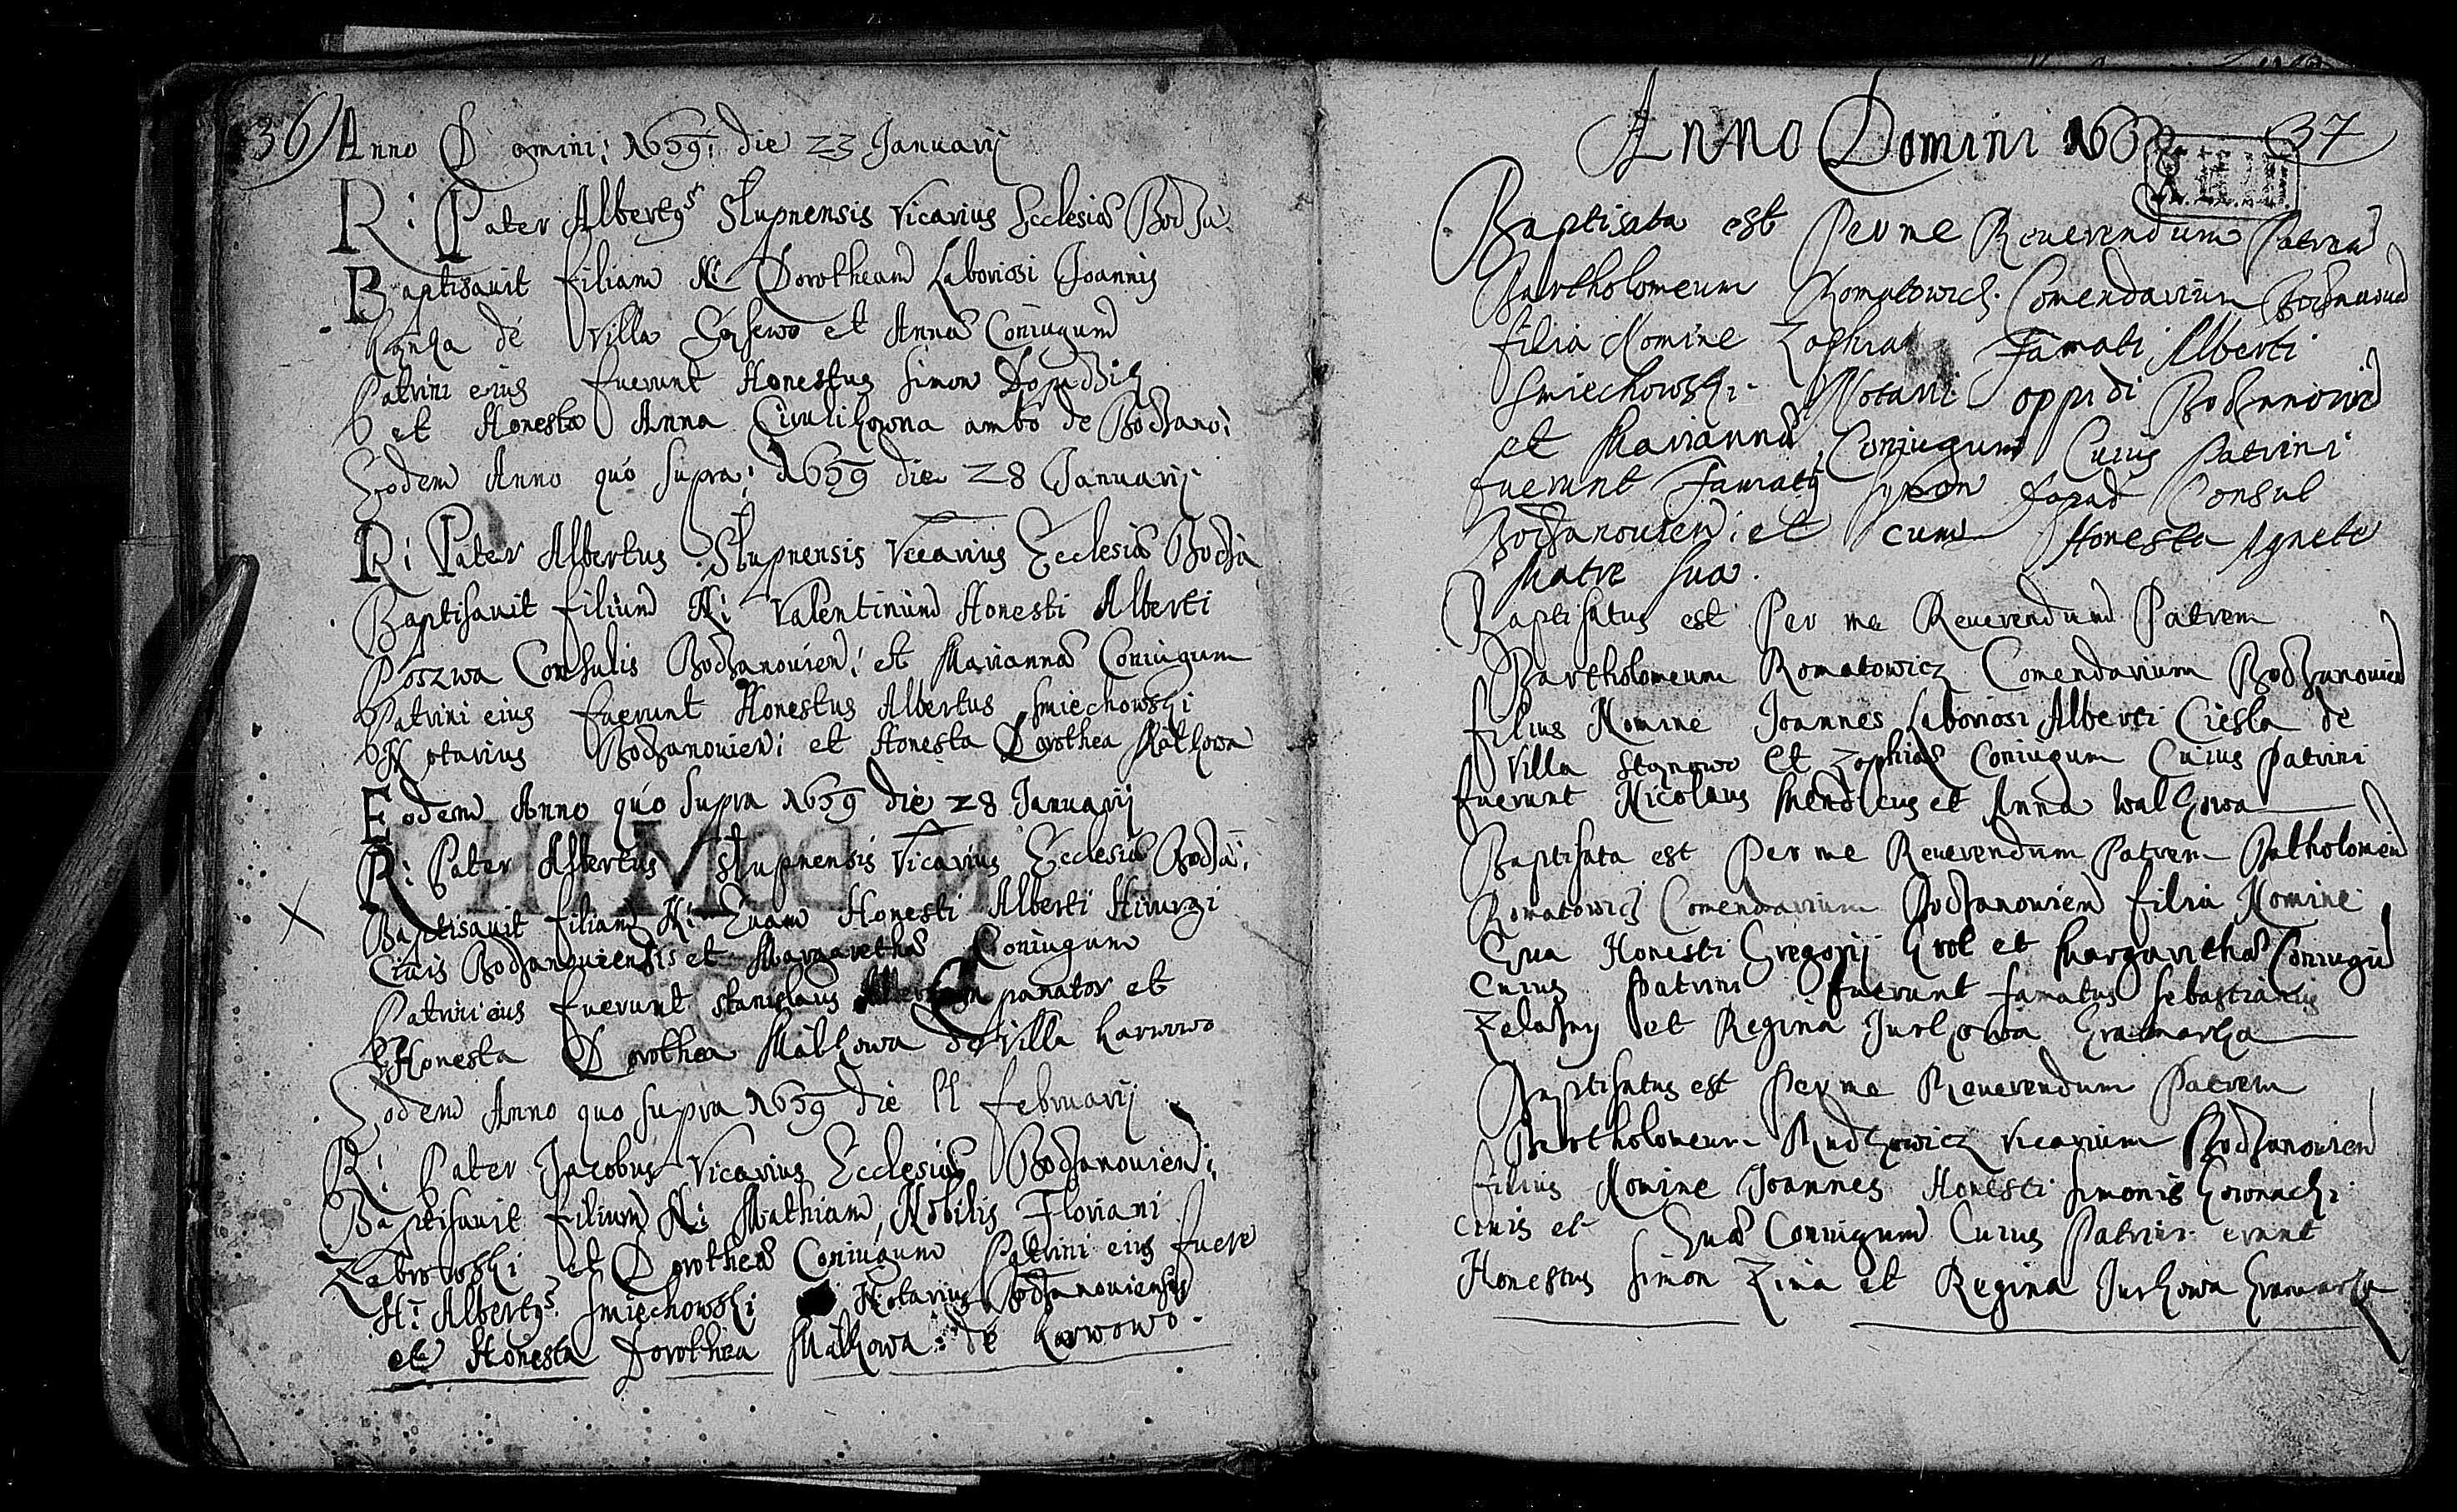 36
Anno Domini: 1659: die 23 Januarij
R: Pater Albertus Slupnensis Vicarius Ecclesiæ Bodza:
Baptisavit filiam N: Dorotheam Laboriosi Joannis
de Villa et Annæ Coniugum
Patrini eius fuerunt Honestus Simon
et Honesta Anna ambo de Bodzano:
Eodem Anno quo supra: 1659 die 28 Januarij
R: Pater Albertus Slupnensis Vicarius Ecclesiæ Bodza
Baptisavit filium N: Valentinum Honesti Alberti
Poszwa Consulis Bodzanovien: et Mariannæ Coniugum
Patrini eius fuerunt Honestus Albertus Smiechowski
Notarius Bodzanovien: et Honesta Dorothea Malkowa
Eodem Anno quo supra 1659 die 28 Januarij
R: Pater Albertus Slupnensis Vicarius Ecclesiæ Bodza:
Baptisavit filiam N: Evam Honesti Alberti
Civis Bodzanoviensis et Margarethæ Coniugum
Patrini eius fuerunt Stanislaus et
Honesta Dorothea Malkowa de Villa Karwowo
Eodem Anno quo supra 1659 die 11 februarij
R: Pater Jacobus Vicarius Ecclesiæ Bodzanovien:
Baptisavit filium N: Mathiam, Nobilis Floriani
Zebrowski et Dorotheæ Coniugum Patrini eius fuere
H: Albertus Smiechowski Notarius Bodzanoviensis
et Honesta Dorothea Malkowa: de Karwowo.
Anno Domini 37
Baptisata est Per me Reverendum Patrem
Bartholomeum Romatowicz Comendarium Bodzanovien
filia Nomine Zophia Famati Alberti
Smiechowski Notarii oppidi
et Mariannæ Coniugum Cuius Patrini
fuerunt Famatus Symon Consul
Bodzanovien: et cum Honesta Agnete
Matre sua.
Baptisatus est Per me Reverendum Patrem
Bartholomeum Romatowicz Comendarium Bodzanovien
filius Nomine Joannes Laboriosi Alberti Ciesla de
Villa et Zophiæ Coniugum Cuius Patrini
fuerunt Nicolaus Mendicus et Anna Walkowa
Baptisata est Per me Reverendum Patrem Batholomeu
Romatowicz Comendarium Bodzanovien filia Nomine
Eva Honesti Gregorij Krol et Margarethæ Coniugu
Cuius Patrini fuerunt famatus Sebastianus
Zelazny et Regina Jurkowa
Baptisatus est Per me Reverendum Patrem
Bartholomeum Rudkowicz Vicarium Bodzanovien
filius Nomine Joannes Honesti Simonis
civis et Evæ Coniugum Cuius Patrini erant
Honestus Simon Zima et Regina Jurkowa